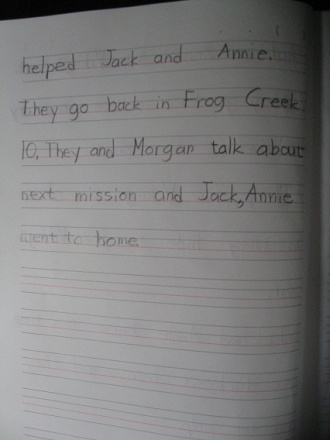 helped Jack and Annie.
They go back in Frog Creek.
10, They and Morgan talk about
next mission and Jack, Annie
went to home.